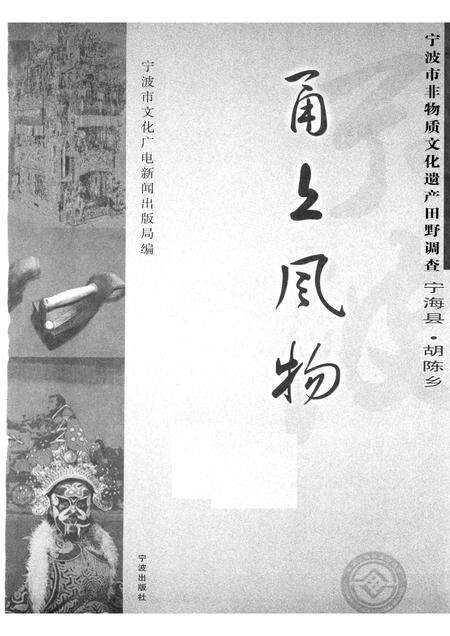 宁波市非物质文化遗产田野调查 宁海县·胡陈乡
甬上风物
宁波市文化广电新闻出版局编
宁波出版社